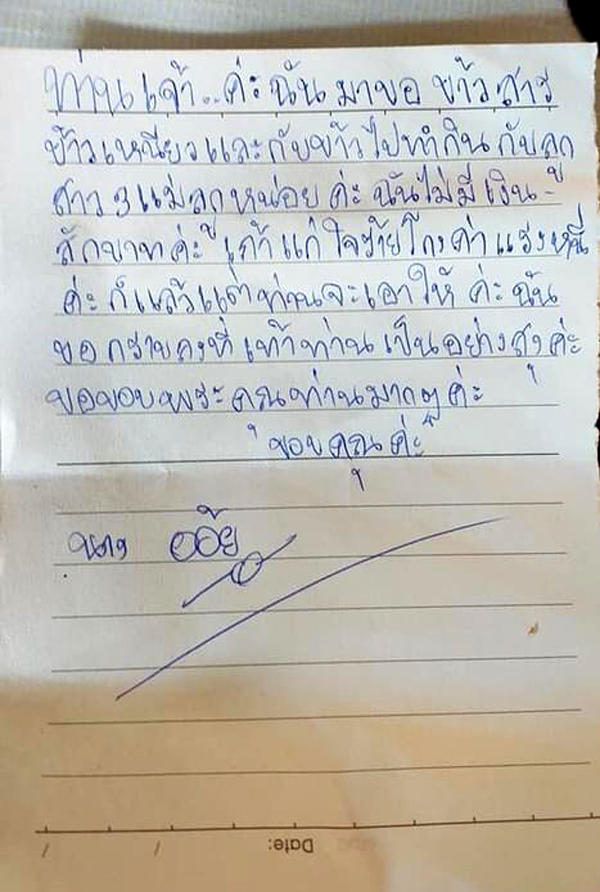 ท่านเจ้า..ค่ะฉันมาขอ ข้าวสาร
ข้าวเหนียวและกับข้าวไปทำกินกับลูก
สาว 3 แม่ลูกหน่อย ค่ะ ฉันไม่มีเงิน
สักบาทค่ะ แก่ ใจร้ายโกงค่าแรง
ค่ะ ก็แล้วแต่ท่านจะเอาให้ ค่ะ ฉัน
ขอกราบลงที่เท้าท่านเป็นอย่างสูงค่ะ
ขอขอบพระคุณท่านมากๆค่ะ
ขอบคุณค่ะ
นาง อ้อย
Date: